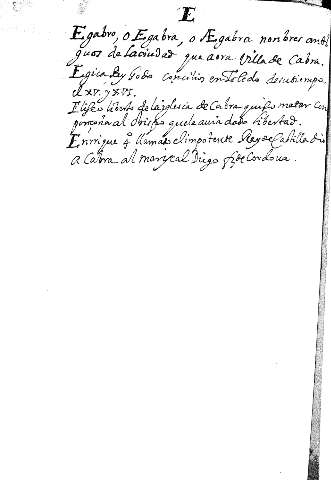 E
Egabro, o Egabra, o Ægabra nombres anti
guos de la ciudad que aora Villa de Cabra.
Egica Rey Godo concilios en Toledo de su tiempo
el XV. y XVI.
liberto de la iglesia de Cabra quiso matar con
ponçoña al Obispo que le avia dado libertad.
Enrique q̄ llaman el impotente Rey de Castilla dio
a Cabra al mariscal Diego fz de Cordova.